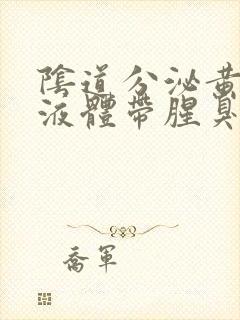 陰道分泌黃
液體帶腥臭
喬軍